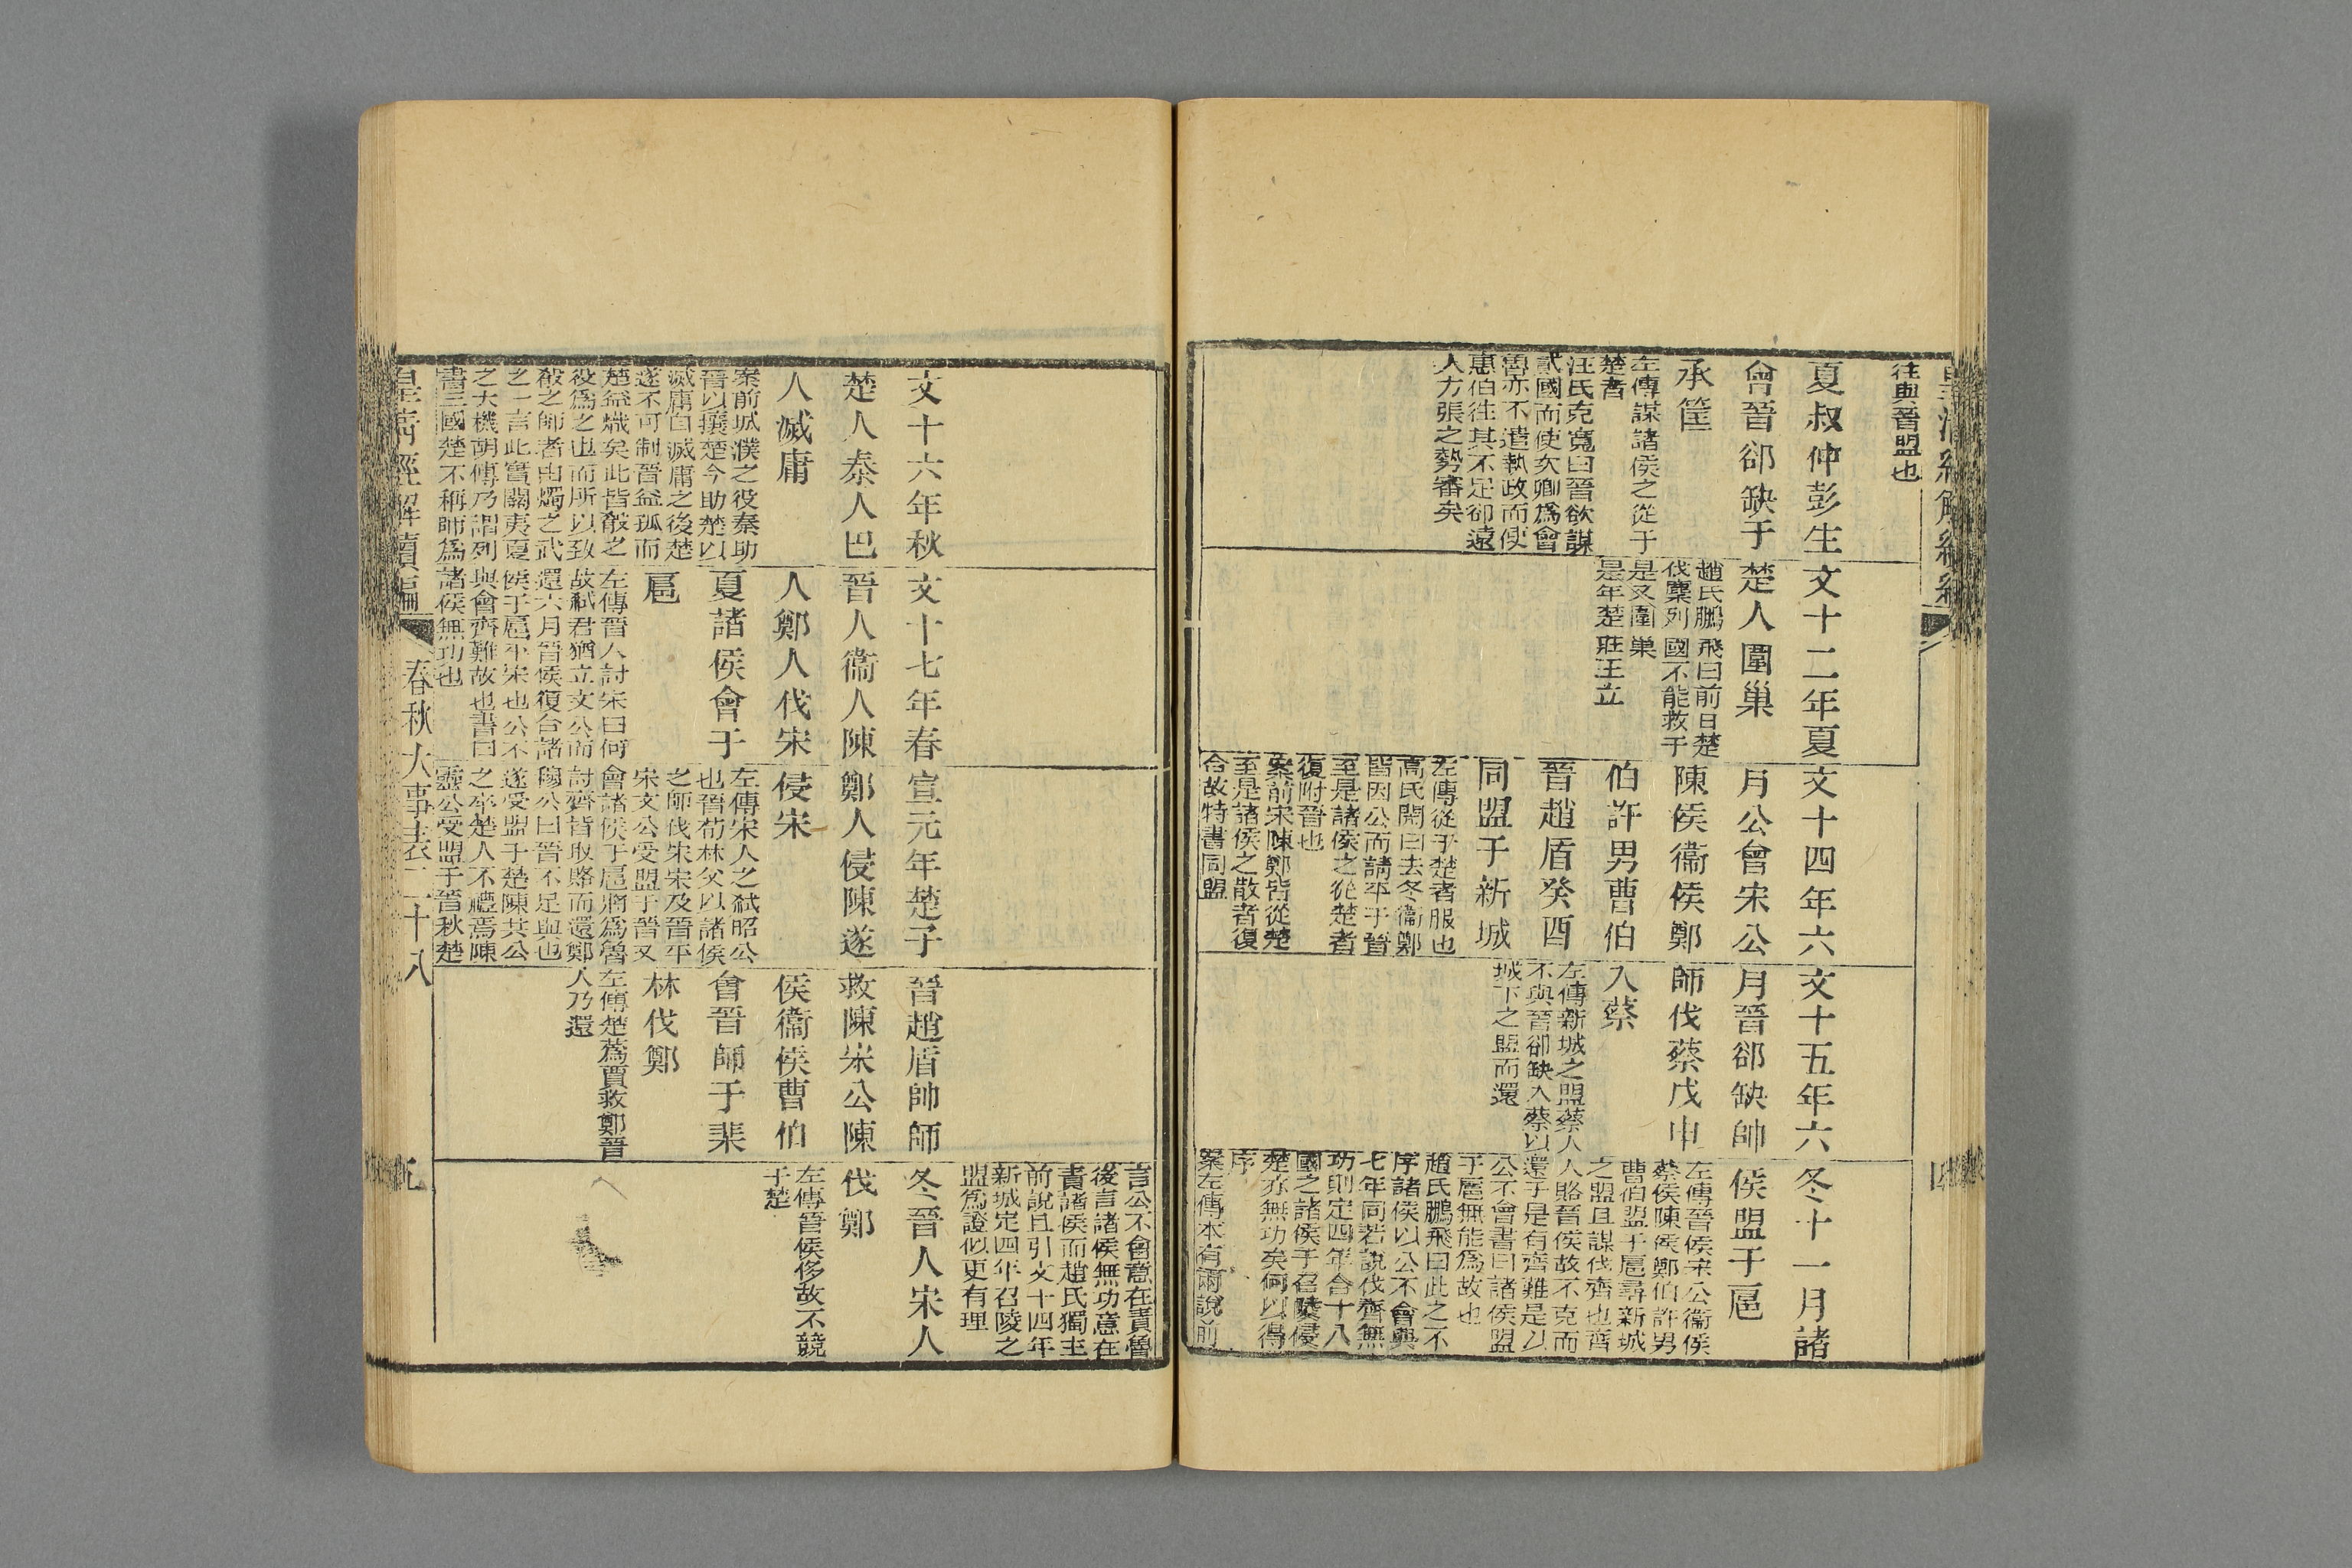 皇清經解續編
四
往與晉盟也
夏叔仲彭生
會晉郤缺于
承筐
左傳謀諸侯之從于
楚者
汪氏克寬曰晉欲謀
貳國而使次卿爲會
魯亦不遣執政而使
惠伯往其不足卻遠
人方張之勢審矣
文十二年夏
楚人圍巢
趙氏鵬飛曰前日楚
伐麇列國不能救于
是又圍巢
是年楚莊王立
文十四年六
月公會宋公
陳侯衞侯鄭
伯許男曹伯
晉趙盾癸酉
同盟于新城
左傳從于楚者服也
高氏閌曰去冬衞鄭
皆因公而請平于晉
至是諸侯之從楚者
復附晉也
案前宋陳鄭皆從楚
至是諸侯之散者復
合故特書同盟
文十五年六
月晉郤缺帥
師伐蔡戊申
入蔡
左傳新城之盟蔡人
不與晉郤缺入蔡以
城下之盟而還
冬十一月諸
侯盟于扈
左傳晉侯宋公衞侯
蔡侯陳侯鄭伯許男
曹伯盟于扈尋新城
之盟且謀伐齊也齊
人賂晉侯故不克而
還于是有齊難是以
公不會書曰諸侯盟
于扈無能爲故也
趙氏鵬飛曰此之不
序諸侯以公不會與
七年同若說伐齊無
功則定四年合十八
國之諸侯于召陵侵
楚亦無功矣何以得
序
案左傳本有兩說前
文十六年秋
楚人秦人巴
人滅庸
案前城濮之役秦助
晉以攘楚今助楚以
滅庸自滅庸之後楚
遂不可制晉益孤而
楚益熾矣此皆殽之
役爲之也而所以致
殽之師者由燭之武
之一言此實關夷夏
之大機胡傳乃謂列
書三國楚不稱師爲
文十七年春
晉人衞人陳
人鄭人伐宋
夏諸侯會于
扈
左傳晉人討宋曰何
故弒君猶立文公而
還六月晉侯復合諸
侯于扈平宋也公不
與會齊難故也書曰
諸侯無功也
宣元年楚子
鄭人侵陳遂
侵宋
左傳宋人之弒昭公
也晉荀林父以諸侯
之師伐宋宋及晉平
宋文公受盟于晉又
會諸侯于扈將爲魯
討齊皆取賂而還鄭
穆公曰晉不足與也
遂受盟于楚陳共公
之卒楚人不禮焉陳
靈公受盟于晉秋楚
晉趙盾帥師
救陳宋公陳
侯衞侯曹伯
會晉師于棐
林伐鄭
左傳楚蒍賈救鄭晉
人乃還
言公不會意在責魯
後言諸侯無功意在
責諸侯而趙氏獨主
前說且引文十四年
新城定四年召陵之
盟爲證似更有理
冬晉人宋人
伐鄭
左傳晉侯侈故不競
于楚
皇清經解續編
春秋大事表二十八
五